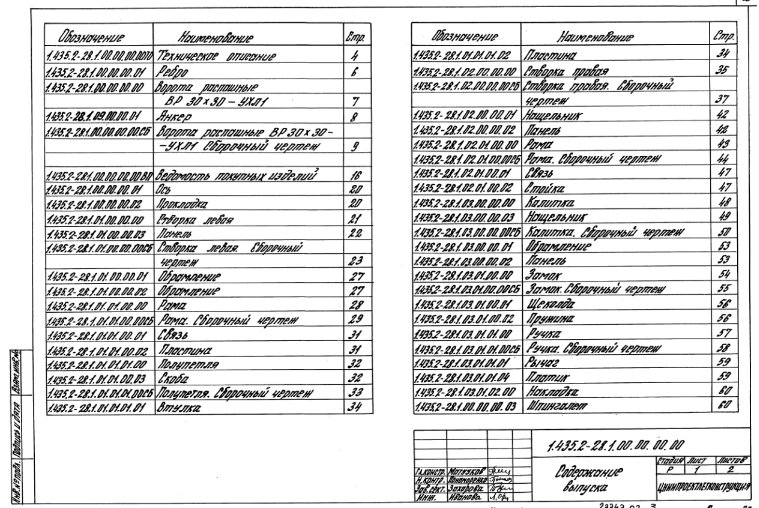 Обозначение Наименование Стр.
1.435.2-28.1.00.00.00.00ТО Техническое описание 4
1.435.2-28.1.00.00.00.01 Ребро 6
1.435.2-28.1.00.00.00.00 Ворота распашные
ВР 30×30 – УХЛ1 7
1.435.2-28.1.09.00.00.01 Анкер 8
1.435.2-28.1.00.00.00.00СБ Ворота распашные ВР 30×30-
-УХЛ1 Сборочный чертеж 9
1.435.2-28.1.00.00.00.00ВП Ведомость покупных изделий 16
1.435.2-28.1.00.00.00.01 Ось 20
1.435.2-28.1.00.00.00.02 Прокладка 20
1.435.2-28.1.01.00.00.00 Створка левая 21
1.435.2-28.1.01.00.00.03 Панель 22
1.435.2-28.1.01.00.00.00СБ Створка левая. Сборочный
чертеж 23
1.435.2-28.1.01.00.00.01 Обрамление 27
1.435.2-28.1.01.00.00.02 Обрамление 27
1.435.2-28.1.01.01.00.00 Рама 28
1.435.2-28.1.01.01.00.00СБ Рама. Сборочный чертеж 29
1.435.2-28.1.01.01.00.01 Связь 31
1.435.2-28.1.01.01.00.02 Пластина 31
1.435.2-28.1.01.01.01.00 Полупетля 32
1.435.2-28.1.01.01.00.03 Скоба 32
1.435.2-28.1.01.01.01.00СБ Полупетля. Сборочный чертеж 33
1.435.2-28.1.01.01.01.01 Втулка 34
Обозначение Наименование Стр.
1.435.2-28.1.01.01.01.02 Пластина 34
1.435.2-28.1.02.00.00.00 Створка правая 35
1.435.2-28.1.02.00.00.00СБ Створка правая. Сборочный
чертеж 37
1.435.2-28.1.02.00.00.01 Нащельник 42
1.435.2-28.1.02.00.00.02 Панель 42
1.435.2-28.1.02.01.00.00 Рама 43
1.435.2-28.1.02.01.00.00СБ Рама. Сборочный чертеж 44
1.435.2-28.1.02.01.00.01 Связь 47
1.435.2-28.1.02.01.00.02 Стойка 47
1.435.2-28.1.03.00.00.00 Калитка 48
1.435.2-28.1.03.00.00.03 Нащельник 49
1.435.2-28.1.03.00.00.00СБ Калитка. Сборочный чертеж 50
1.435.2-28.1.03.00.00.01 Обрамление 53
1.435.2-28.1.03.00.00.02 Панель 53
1.435.2-28.1.03.01.00.00 Замок 54
1.435.2-28.1.03.01.00.00СБ Замок. Сборочный чертеж 55
1.435.2-28.1.03.01.00.01 Щеколда 56
1.435.2-28.1.03.01.00.02 Пружина 56
1.435.2-28.1.03.01.01.00 Ручка 57
1.435.2-28.1.03.01.01.00СБ Ручка. Сборочный чертеж 58
1.435.2-28.1.03.01.01.01 Рычаг 59
1.435.2-28.1.03.01.01.04 Платик 59
1.435.2-28.1.03.01.02.00 Накладка 60
1.435.2-28.1.00.00.00.03 Шпингалет 60
1.435.2-28.1.00.00.00.00
Содержание
выпуска
Стадия Лист Листов
Р 1 2
ЦНИИПРОЕКТЛЕГКОНСТРУКЦИЯ
Гл.констр.
Н.контр.
Зав.сект. Захарова
Инж. Иванова
Инв.№ подл. Подпись и дата Взам.инв.№
23343-02 3